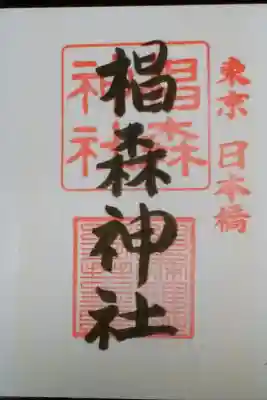 東京 日本橋
椙森神社
椙森
神社